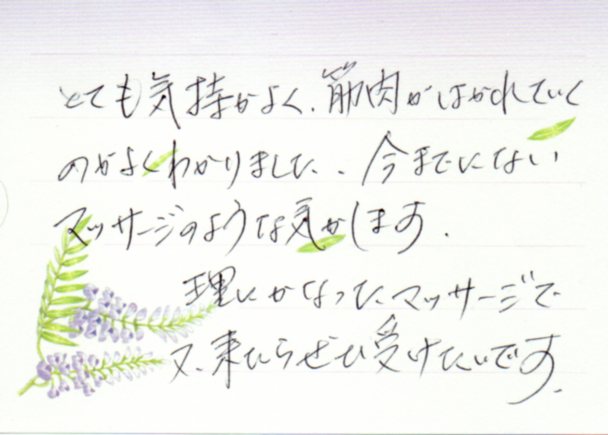 とても気持かよく、筋肉がはがれていく
のがよくわかりました.. 今までにない
マッサージのような気がします.
理にかなったマッサージで
又、来たらぜひ受けたいです.